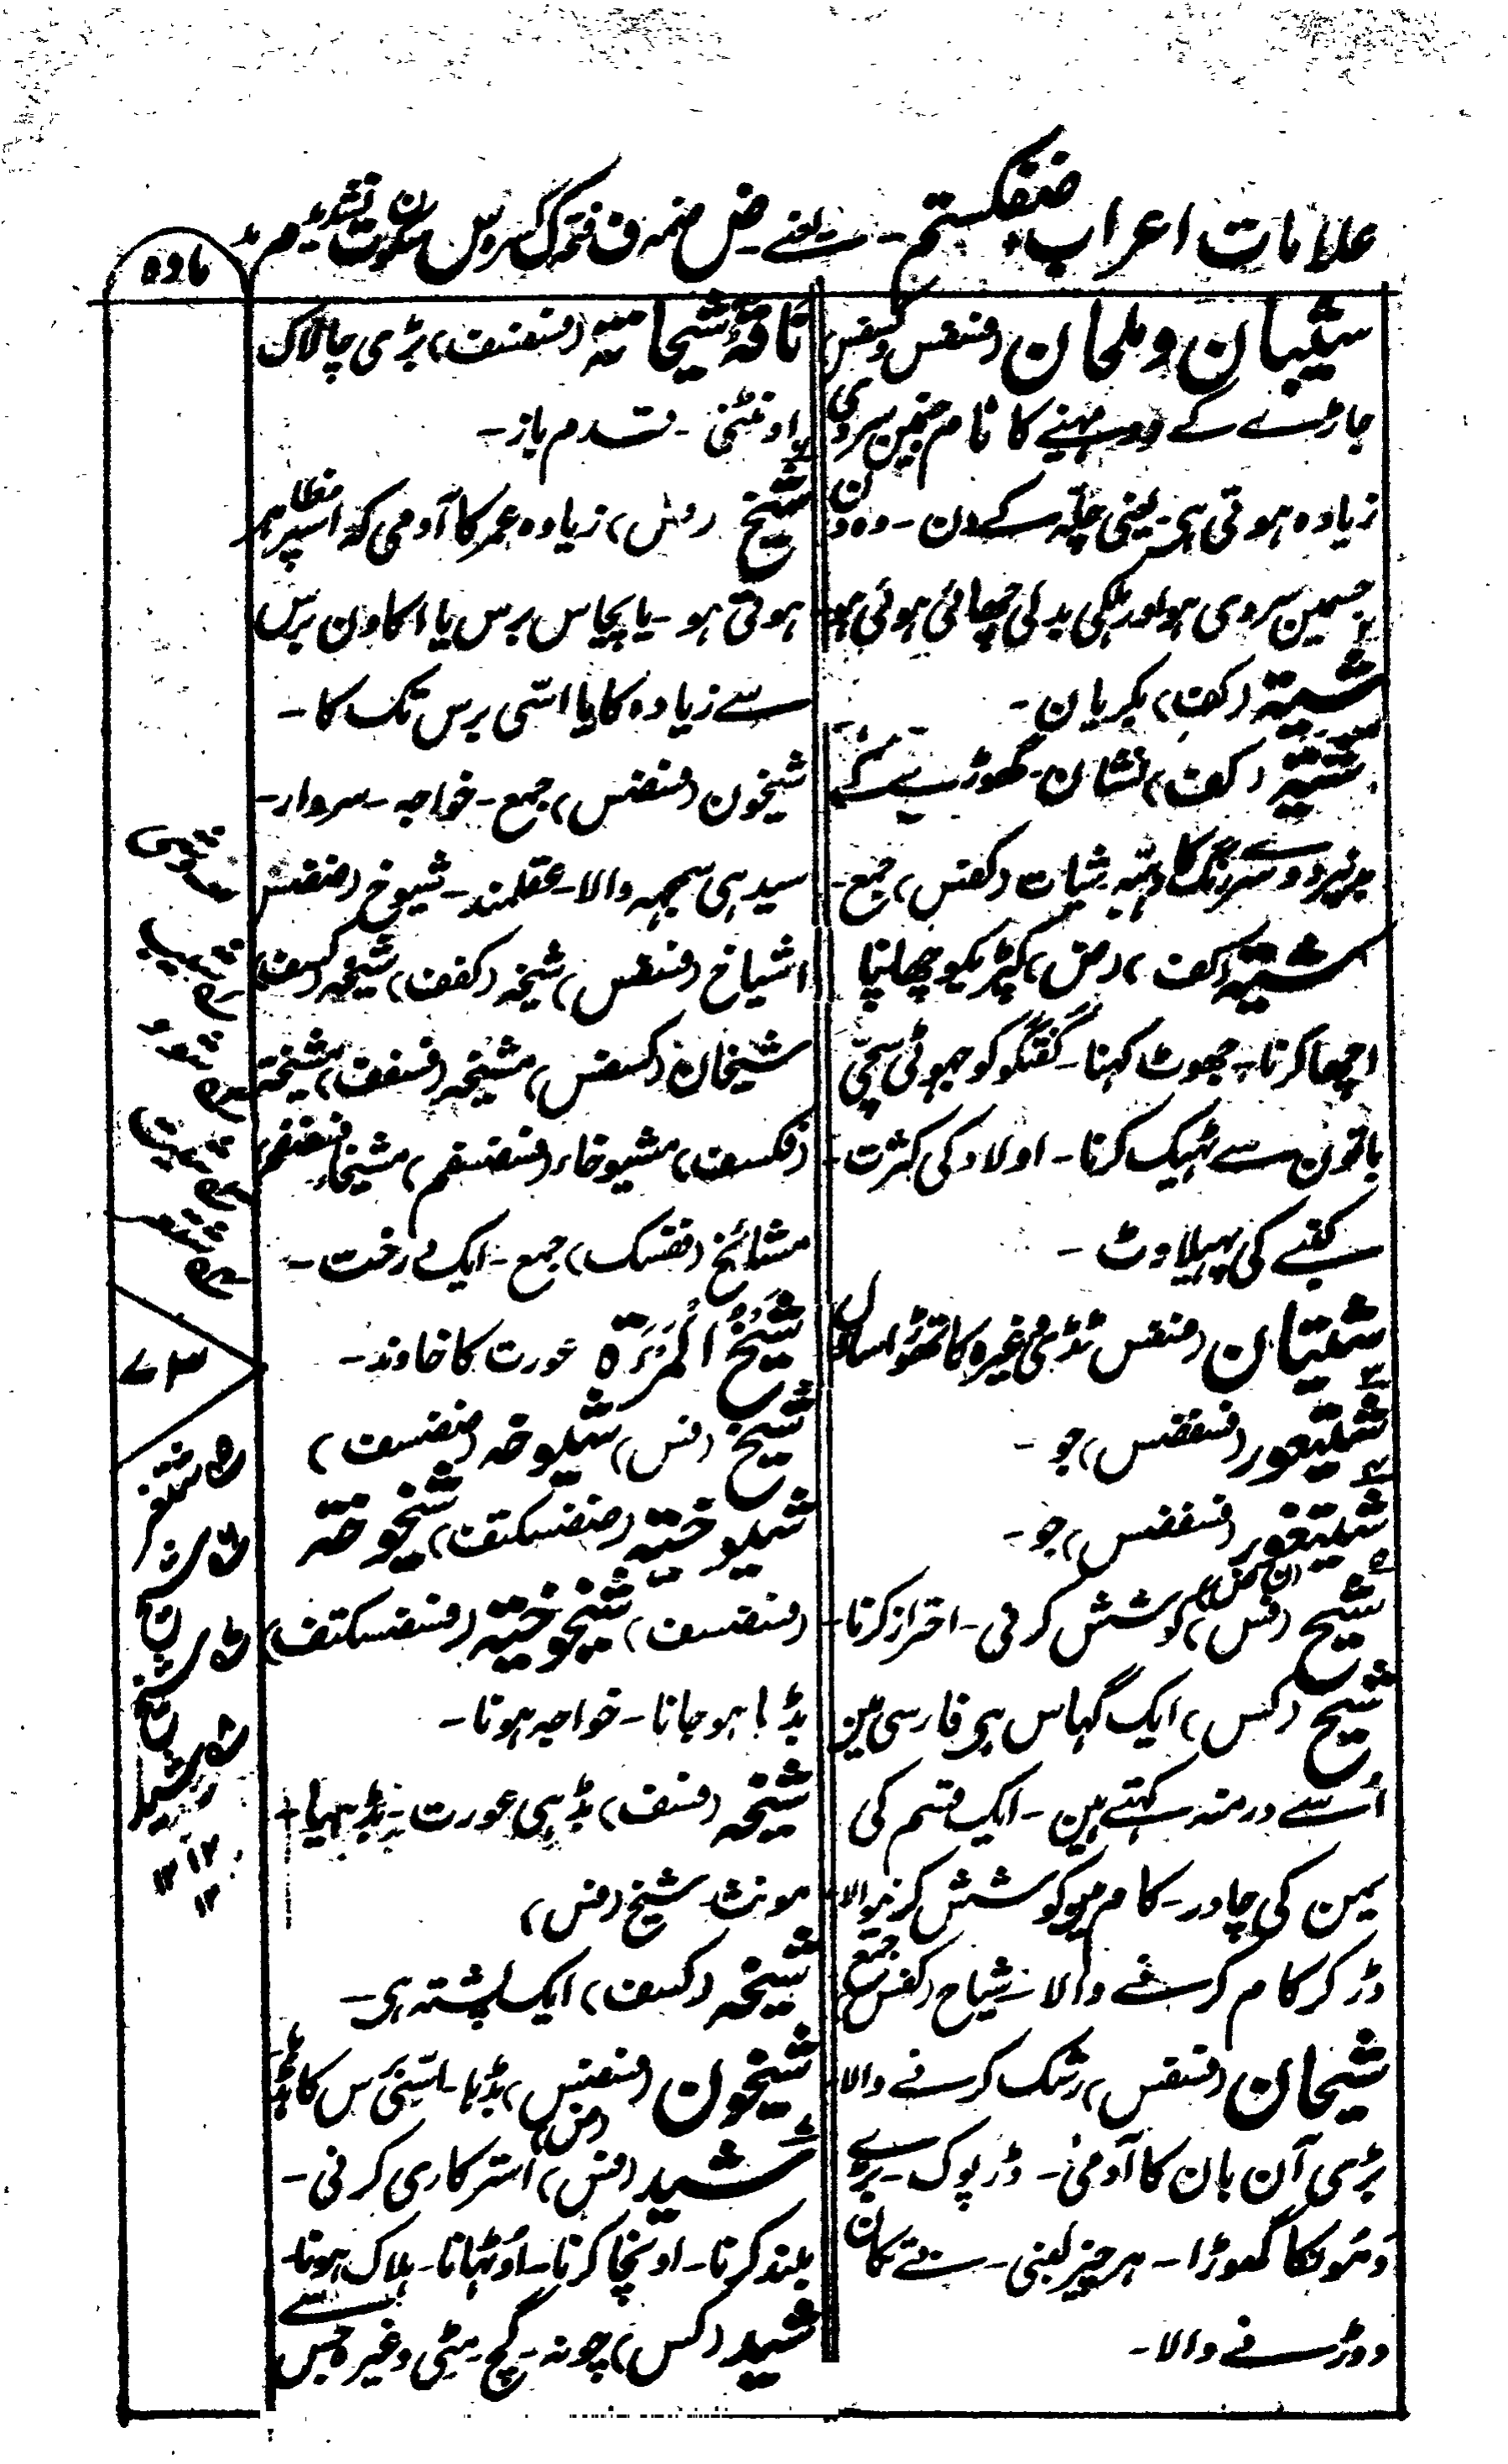 علامات اعراب ضفکستم۔ یعنے ض ضمہ ف فتحہ ک کسرہ س سکون ت تشدید م مد
مادہ
شیبان و ملحان (فسفس وکسفس
جاڑے کے دو مہینے کا نام جنمین سردی
زیادہ ہوتی ہی۔ یعنی چلّہ کے دن۔ وہ دن
جسمین سردی ہو اور ہلکی بدلی چھائی ہوئی ہو
شیتہ (کف) بکریان۔
شیۃ (کف) نشان۔ گھوڑے کے
شیات (کفس) جمع۔
شیتہ (کف) (فس) کپڑیکو چھاپنا
اچھا کرنا۔ جھوٹ کہنا۔ گفتگو کو جھوٹی سچی
باتون سے ٹھیک کرنا۔ اولاد کی کثرت۔
کتے کی پھیلاوٹ۔
شیتان (فسفس) ٹڈی وغیرہ کا تھوڑا سا دل
شیتعور (فسفضس) جو۔
شیتغور (فسفضس) جو۔
شیح (فس) کوشش کرنی۔ احتراز کرنا۔
شیح (کس) ایک گھاس ہی فارسی مین
اُسے درمنہ کہتے ہین۔ ایک قسم کی
یمن کی چادر۔ کام مین کوشش کرنیوالا
ڈر کر کام کرنے والا۔ شیاح (کفس) جمع
شیحان (فسفس) رشک کرنے والا
بڑی آن بان کا آدمی۔ ڈرپوک۔ بڑے
دمونکا گھوڑا۔ ہر چیز یعنی۔ بے تکان
دوڑنے والا۔
ناقۃ شیحانتہ (فسفسف) بڑی چالاک
اونٹنی۔ قدم باز۔
شیخ (فس) زیادہ عمر کا آدمی کہ اسپر ظاہر
ہوتی ہو۔ یا پچاس برس یا اکاون برس
سے زیادہ کا یا اسّی برس تک کا۔
شیخون (فسضس) جمع۔ خواجہ۔ سردار۔
سیدہی سمجھ والا۔ عقلمند۔ شیوخ (ضضس
اشیاخ (فسفس) شیخہ (کفف) شیخہ (کسف)
شیخان (کسفس) مشیخہ (فسفف) مشیخۃ
(فکسف) مشیوخاء (فسضسفم) مشیخاء
مشائخ (ففسک) جمع۔ ایک درخت۔
شَیْخُ الْمَرْءَۃ عورت کا خاوند۔
شیخ (فس) شیوخہ (ضضسف)
شیوخیتہ (ضضسکتف) شیخوختہ
(فسضسف) شیخوخیتہ (فسضسکتف)
بڈہا ہو جانا۔ خواجہ ہونا۔
شیخہ (فسف) بڈہی عورت۔ بڈہیا۔
مونث شیخ (فس)
شیخہ (کسف) ایک پشتہ ہی۔
شیخون (فسضس) بڈہا۔ اسّی برس کا بڈہا۔
شید (فس) استرکاری کرنی۔
بلند کرنا۔ اونچا کرنا۔ اوٹھانا۔ ہلاک ہونا۔
شید (کس) چونہ۔ گچ۔ مٹی وغیرہ جس سے
۷۳